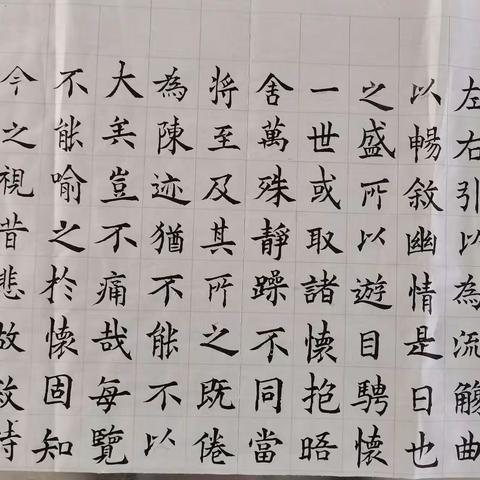 左右引以為流觴曲
以暢敘幽情是日也
之盛所以遊目騁懷
一世或取諸懷抱晤
舍萬殊靜躁不同當
將至及其所之既倦
為陳迹猶不能不以
大矣豈不痛哉每覽
不能喻之於懷固知
今之視昔悲故敘時